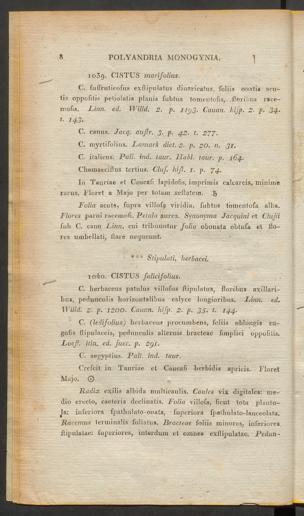 8 POLYANDRIA MONOGYNIA.
1059. CISTUS marifolius.
C. suffruticosus exstipulatus diuaricatus, foliis ouatis acu-
tis oppositis petiolatis planis subtus tomentosis, floribus race-
mosis. Linn. ed. Willd. 2. p. 1193. Cauan. hisp. 2. p. 34.
t. 143.
C. canus. Jacq. austr. 3. p. 42. t. 277.
C. myrtifolius. Lamark dict. 2. p. 20. n. 31.
C. italicus. Pall. ind. taur. Habl. taur. p. 164.
Chamaecistus tertius. Clus. hist. 1. p. 74.
In Tauriae et Caucasi lapidosis, imprimis calcareis, minime
rarus. Floret a Majo per totam aestatem. ♄
Folia acuta, supra villosa viridia, subtus tomentosa alba.
Flores parui racemosi. Petala aurea. Synonyma Jacquini et Clusii
sub C. cano Linn. cui tribuuntur folia obouata obtusa et flo-
res umbellati, stare nequeunt.
*** Stipulati, herbacei.
1060. CISTUS salicifolius.
C. herbaceus patulus villosus stipulatus, floribus axillari-
bus, pedunculis horizontalibus calyce longioribus. Linn. ed.
Willd. 2. p. 1200. Cauan. hisp. 2. p. 35. t. 144.
C. (ledifolius) herbaceus procumbens, foliis oblongis an-
gustis stipulaceis, pedunculis alternis bracteae simplici oppositis.
Loefl. itin. ed. suec. p. 291.
C. aegyptius. Pall. ind. taur.
Crescit in Tauriae et Caucasi herbidis apricis. Floret
Majo. ☉.
Radix exilis albida multicaulis. Caules vix digitales: me-
dio erecto, caeteris declinatis. Folia villosa, sicut tota plantu-
la: inferiora spathulato-ouata, superiora spathulato-lanceolata.
Racemus terminalis foliatus. Bracteae foliis minores, inferiores
stipulatae: superiores, interdum et omnes exstipulatae. Pedun-